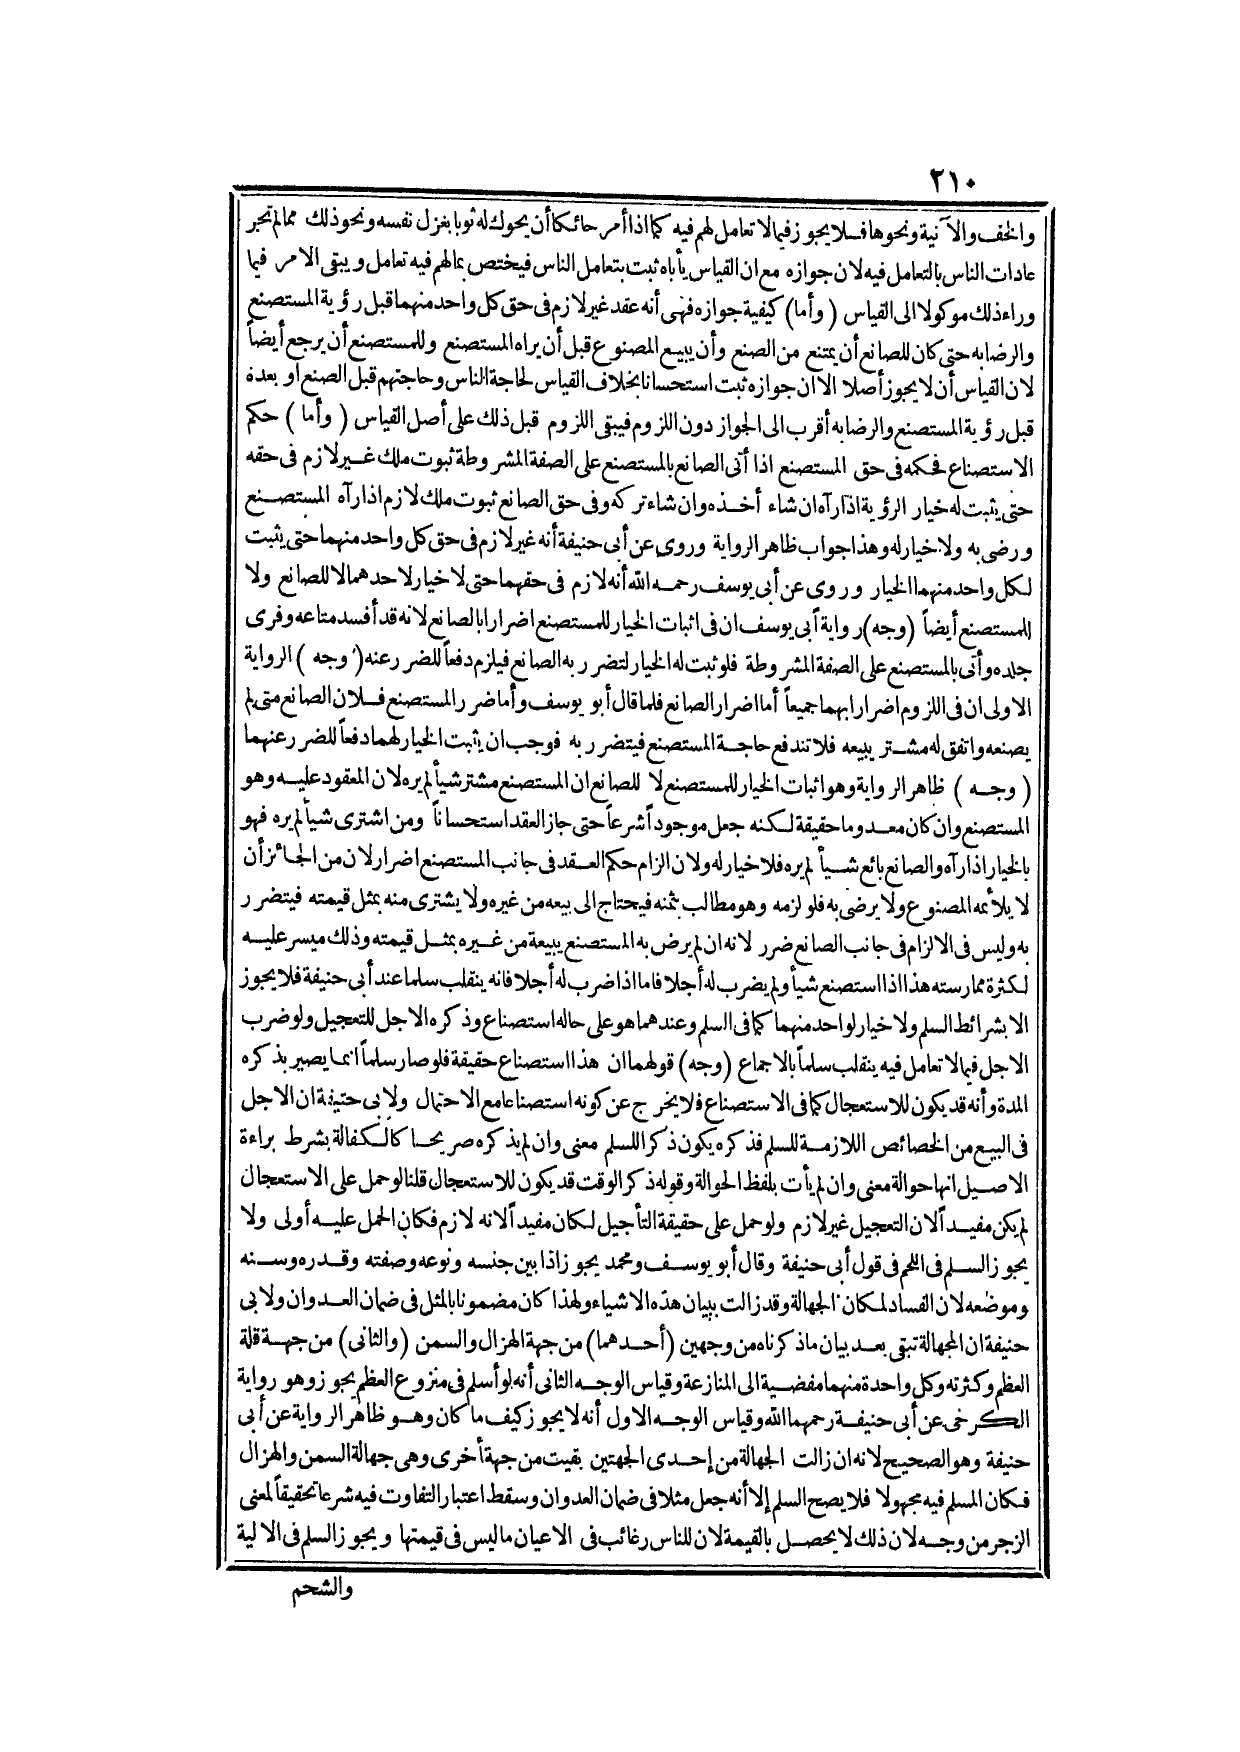 ٢١٠
والخف والآنية ونحوها فلا يجوز فيما لا تعامل لهم فيه كما اذا أمر حائكا أن يحوك له ثوبا بغزل نفسه ونحو ذلك مما لم تجر
عادات الناس بالتعامل فيه لان جوازه مع ان القياس يأباه ثبت بتعامل الناس فيختص بما لهم فيه تعامل ويبقى الامر فيما
وراء ذلك موكولا الى القياس (وأما) كيفية جوازه فهى أنه عقد غير لازم فى حق كل واحد منهما قبل رؤية المستصنع
والرضا به حتى كان للصانع أن يمتنع من الصنع وأن يبيع المصنوع قبل أن يراه المستصنع وللمستصنع أن يرجع أيضاً
لان القياس أن لا يجوز أصلا الا ان جوازه ثبت استحسانا بخلاف القياس لحاجة الناس وحاجتهم قبل الصنع او بعده
قبل رؤية المستصنع والرضا به أقرب الى الجواز دون اللزوم فيبقى اللزوم قبل ذلك على أصل القياس (وأما) حكم
الاستصناع فحكمه فى حق المستصنع اذا أتى الصانع بالمستصنع على الصفة المشروطة ثبوت ملك غير لازم فى حقه
حتى يثبت له خيار الرؤية اذا رآه ان شاء أخذه وان شاء تركه وفى حق الصانع ثبوت ملك لازم اذا رآه المستصنع
ورضى به ولا خيار له وهذا جواب ظاهر الرواية وروى عن أبى حنيفة أنه غير لازم فى حق كل واحد منهما حتى يثبت
لكل واحد منهما الخيار وروى عن أبى يوسف رحمه الله أنه لازم فى حقهما حتى لا خيار لاحدهما لا للصانع ولا
للمستصنع أيضاً (وجه) رواية أبى يوسف ان فى اثبات الخيار للمستصنع اضرارا بالصانع لانه قد أفسد متاعه وفرى
جلده وأتى بالمستصنع على الصفة المشروطة فلو ثبت له الخيار لتضرر به الصانع فيلزم دفعاً للضرر عنه (وجه) الرواية
الاولى ان فى اللزوم اضرارا بهما جميعاً أما اضرار الصانع فلما قال أبو يوسف وأما ضرر المستصنع فلان الصانع متى لم
يصنعه واتفق له مشتر يبيعه فلا تندفع حاجة المستصنع فيتضرر به فوجب ان يثبت الخيار لهما دفعاً للضرر عنهما
(وجه) ظاهر الرواية وهو اثبات الخيار للمستصنع لا للصانع ان المستصنع مشتر شيأ لم يره لان المعقود عليه وهو
المستصنع وان كان معدوما حقيقة لكنه جعل موجوداً شرعاً حتى جاز العقد استحساناً ومن اشترى شيأ لم يره فهو
بالخيار اذا رآه والصانع بائع شيأ لم يره فلا خيار له ولان الزام حكم العقد فى جانب المستصنع اضرار لان من الجائز أن
لا يلائمه المصنوع ولا يرضى به فلو لزمه وهو مطالب بثمنه فيحتاج الى بيعه من غيره ولا يشترى منه بمثل قيمته فيتضرر
به وليس فى الالزام فى جانب الصانع ضرر لانه ان لم يرض به المستصنع يبيعة من غيره بمثل قيمته وذلك ميسر عليه
لكثرة ممارسته هذا اذا استصنع شيأ ولم يضرب له أجلا فاما اذا ضرب له أجلا فانه ينقلب سلما عند أبى حنيفة فلا يجوز
الا بشرائط السلم ولا خيار لواحد منهما كما فى السلم وعندهما هو على حاله استصناع وذكره الاجل للتعجيل ولو ضرب
الاجل فيما لا تعامل فيه ينقلب سلماً بالاجماع (وجه) قولهما ان هذا استصناع حقيقة فلو صار سلماً انما يصير بذكره
المدة وأنه قد يكون للاستعجال كما فى الاستصناع فلا يخرج عن كونه استصناعا مع الاحتمال ولابى حنيفة ان الاجل
فى البيع من الخصائص اللازمة للسلم فذكره يكون ذكر اللسلم معنى وان لم يذكره صريحا كالكفالة بشرط براءة
الاصيل انها حوالة معنى وان لم يأت بلفظ الحوالة وقوله ذكر الوقت قد يكون للاستعجال قلنا لو حمل على الاستعجال
لم يكن مفيداً لان التعجيل غير لازم ولو حمل على حقيقة التأجيل لكان مفيداً لانه لازم فكان الحمل عليه أولى ولا
يجوز السلم فى اللحم فى قول أبى حنيفة وقال أبو يوسف ومحمد يجوز اذا بين جنسه ونوعه وصفته وقدره وسنه
وموضعه لان الفساد لمكان الجهالة وقد زالت ببيان هذه الاشياء ولهذا كان مضمونا بالمثل فى ضمان العدوان ولابى
حنيفة ان الجهالة تبقى بعد بيان ما ذكرناه من وجهين (أحدهما) من جهة الهزال والسمن (والثانى) من جهة قلة
العظم وكثرته وكل واحدة منهما مفضية الى المنازعة وقياس الوجه الثانى أنه لو أسلم فى منزوع العظم يجوز وهو رواية
الكرخى عن أبى حنيفة رحمهما الله وقياس الوجه الاول أنه لا يجوز كيف ما كان وهو ظاهر الرواية عن أبى
حنيفة وهو الصحيح لانه ان زالت الجهالة من إحدى الجهتين بقيت من جهة أخرى وهى جهالة السمن والهزال
فكان المسلم فيه مجهولا فلا يصح السلم إلا أنه جعل مثلا فى ضمان العدوان وسقط اعتبار التفاوت فيه شرعا تحقيقاً لمعنى
الزجر من وجه لان ذلك لا يحصل بالقيمة لان للناس رغائب فى الاعيان ما ليس فى قيمتها ويجوز السلم فى الالية
والشحم